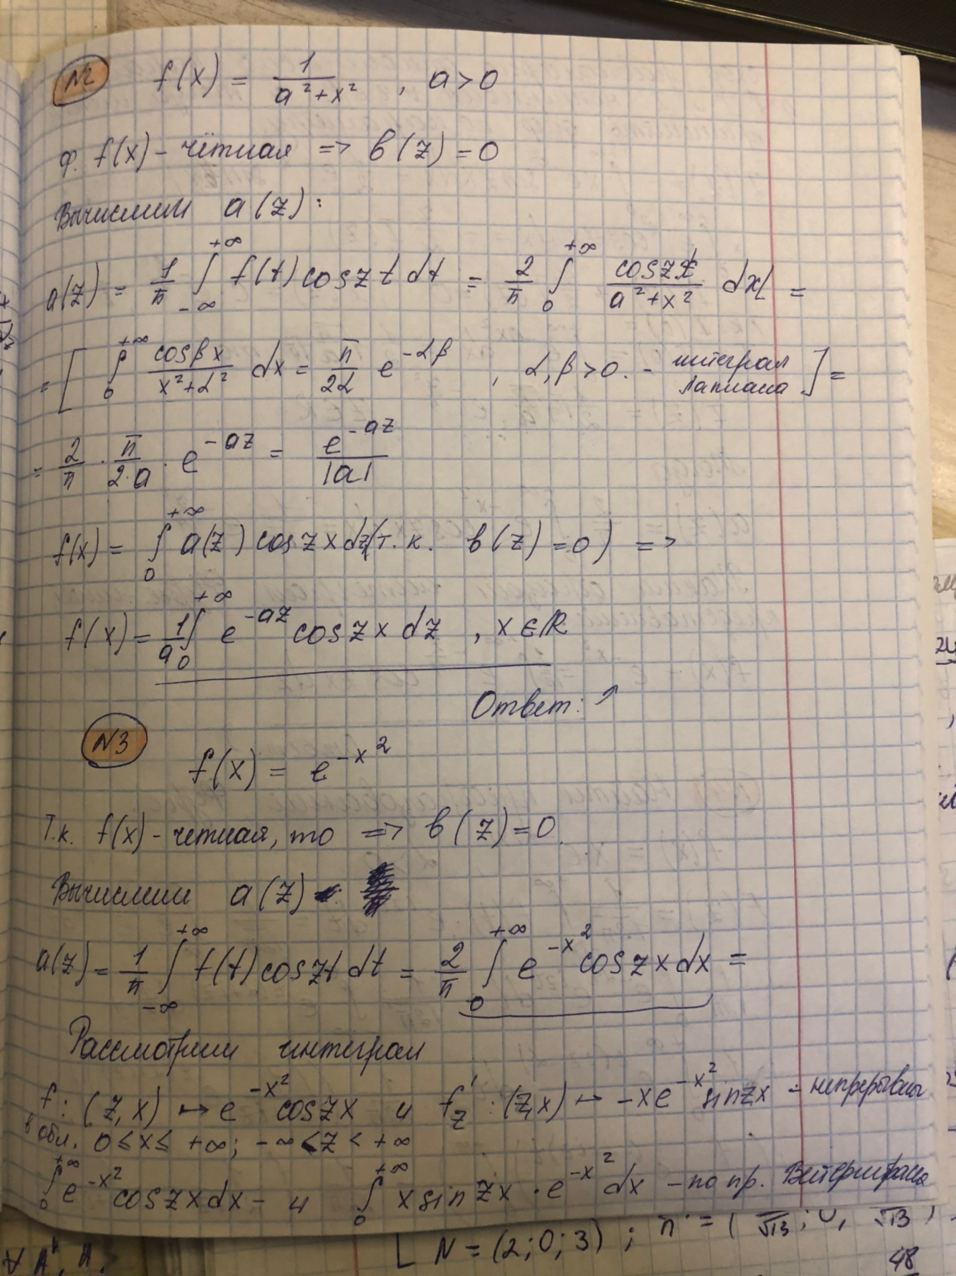 №2 f(x) = 1/(a²+x²) , a>0
ф. f(x) - чётная => b(z) = 0
Вычислим a(z):
a(z) = 1/π ∫_{-∞}^{+∞} f(t) cos zt dt = 2/π ∫_0^{+∞} cos zx/(a²+x²) dx =
= [ ∫_0^{+∞} cos βx/(x²+α²) dx = π/2α e^{-αβ} , α,β>0. - интеграл Лапласа ] =
= 2/π · π/(2·a) · e^{-az} = e^{-az}/|a|
f(x) = ∫_0^{+∞} a(z) cos zx dz (т.к. b(z)=0) =>
f(x) = 1/a ∫_0^{+∞} e^{-az} cos zx dz , x∈R
Ответ: ↑
№3
f(x) = e^{-x²}
Т.к. f(x) - четная, то => b(z)=0
Вычислим a(z)
a(z) = 1/π ∫_{-∞}^{+∞} f(t) cos zt dt = 2/π ∫_0^{+∞} e^{-x²} cos zx dx =
Рассмотрим интеграл
f: (z,x) ↦ e^{-x²} cos zx и f'_z : (z,x) ↦ -xe^{-x²} sin zx - непрерывны
в обл. 0≤x≤ +∞; -∞<z<+∞
∫_0^{+∞} e^{-x²} cos zx dx - и ∫_0^{+∞} x sin zx · e^{-x²} dx - по пр. Вейерштрасса
N = (2; 0; 3) ;
48